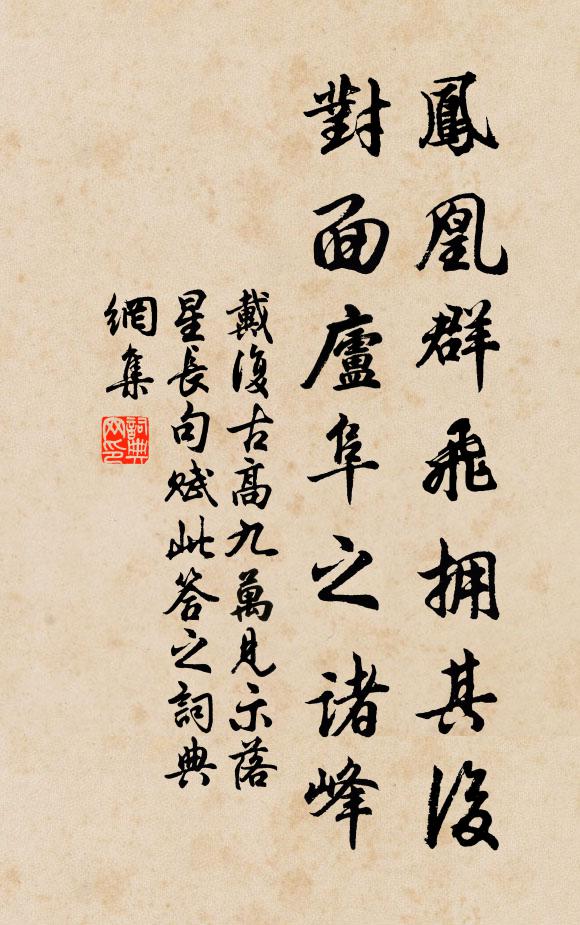 鳳凰群飛擁其後
對面廬阜之諸峰
戴復古高九萬見示落
星長句賦此答之詞典
網集
詞典
网印